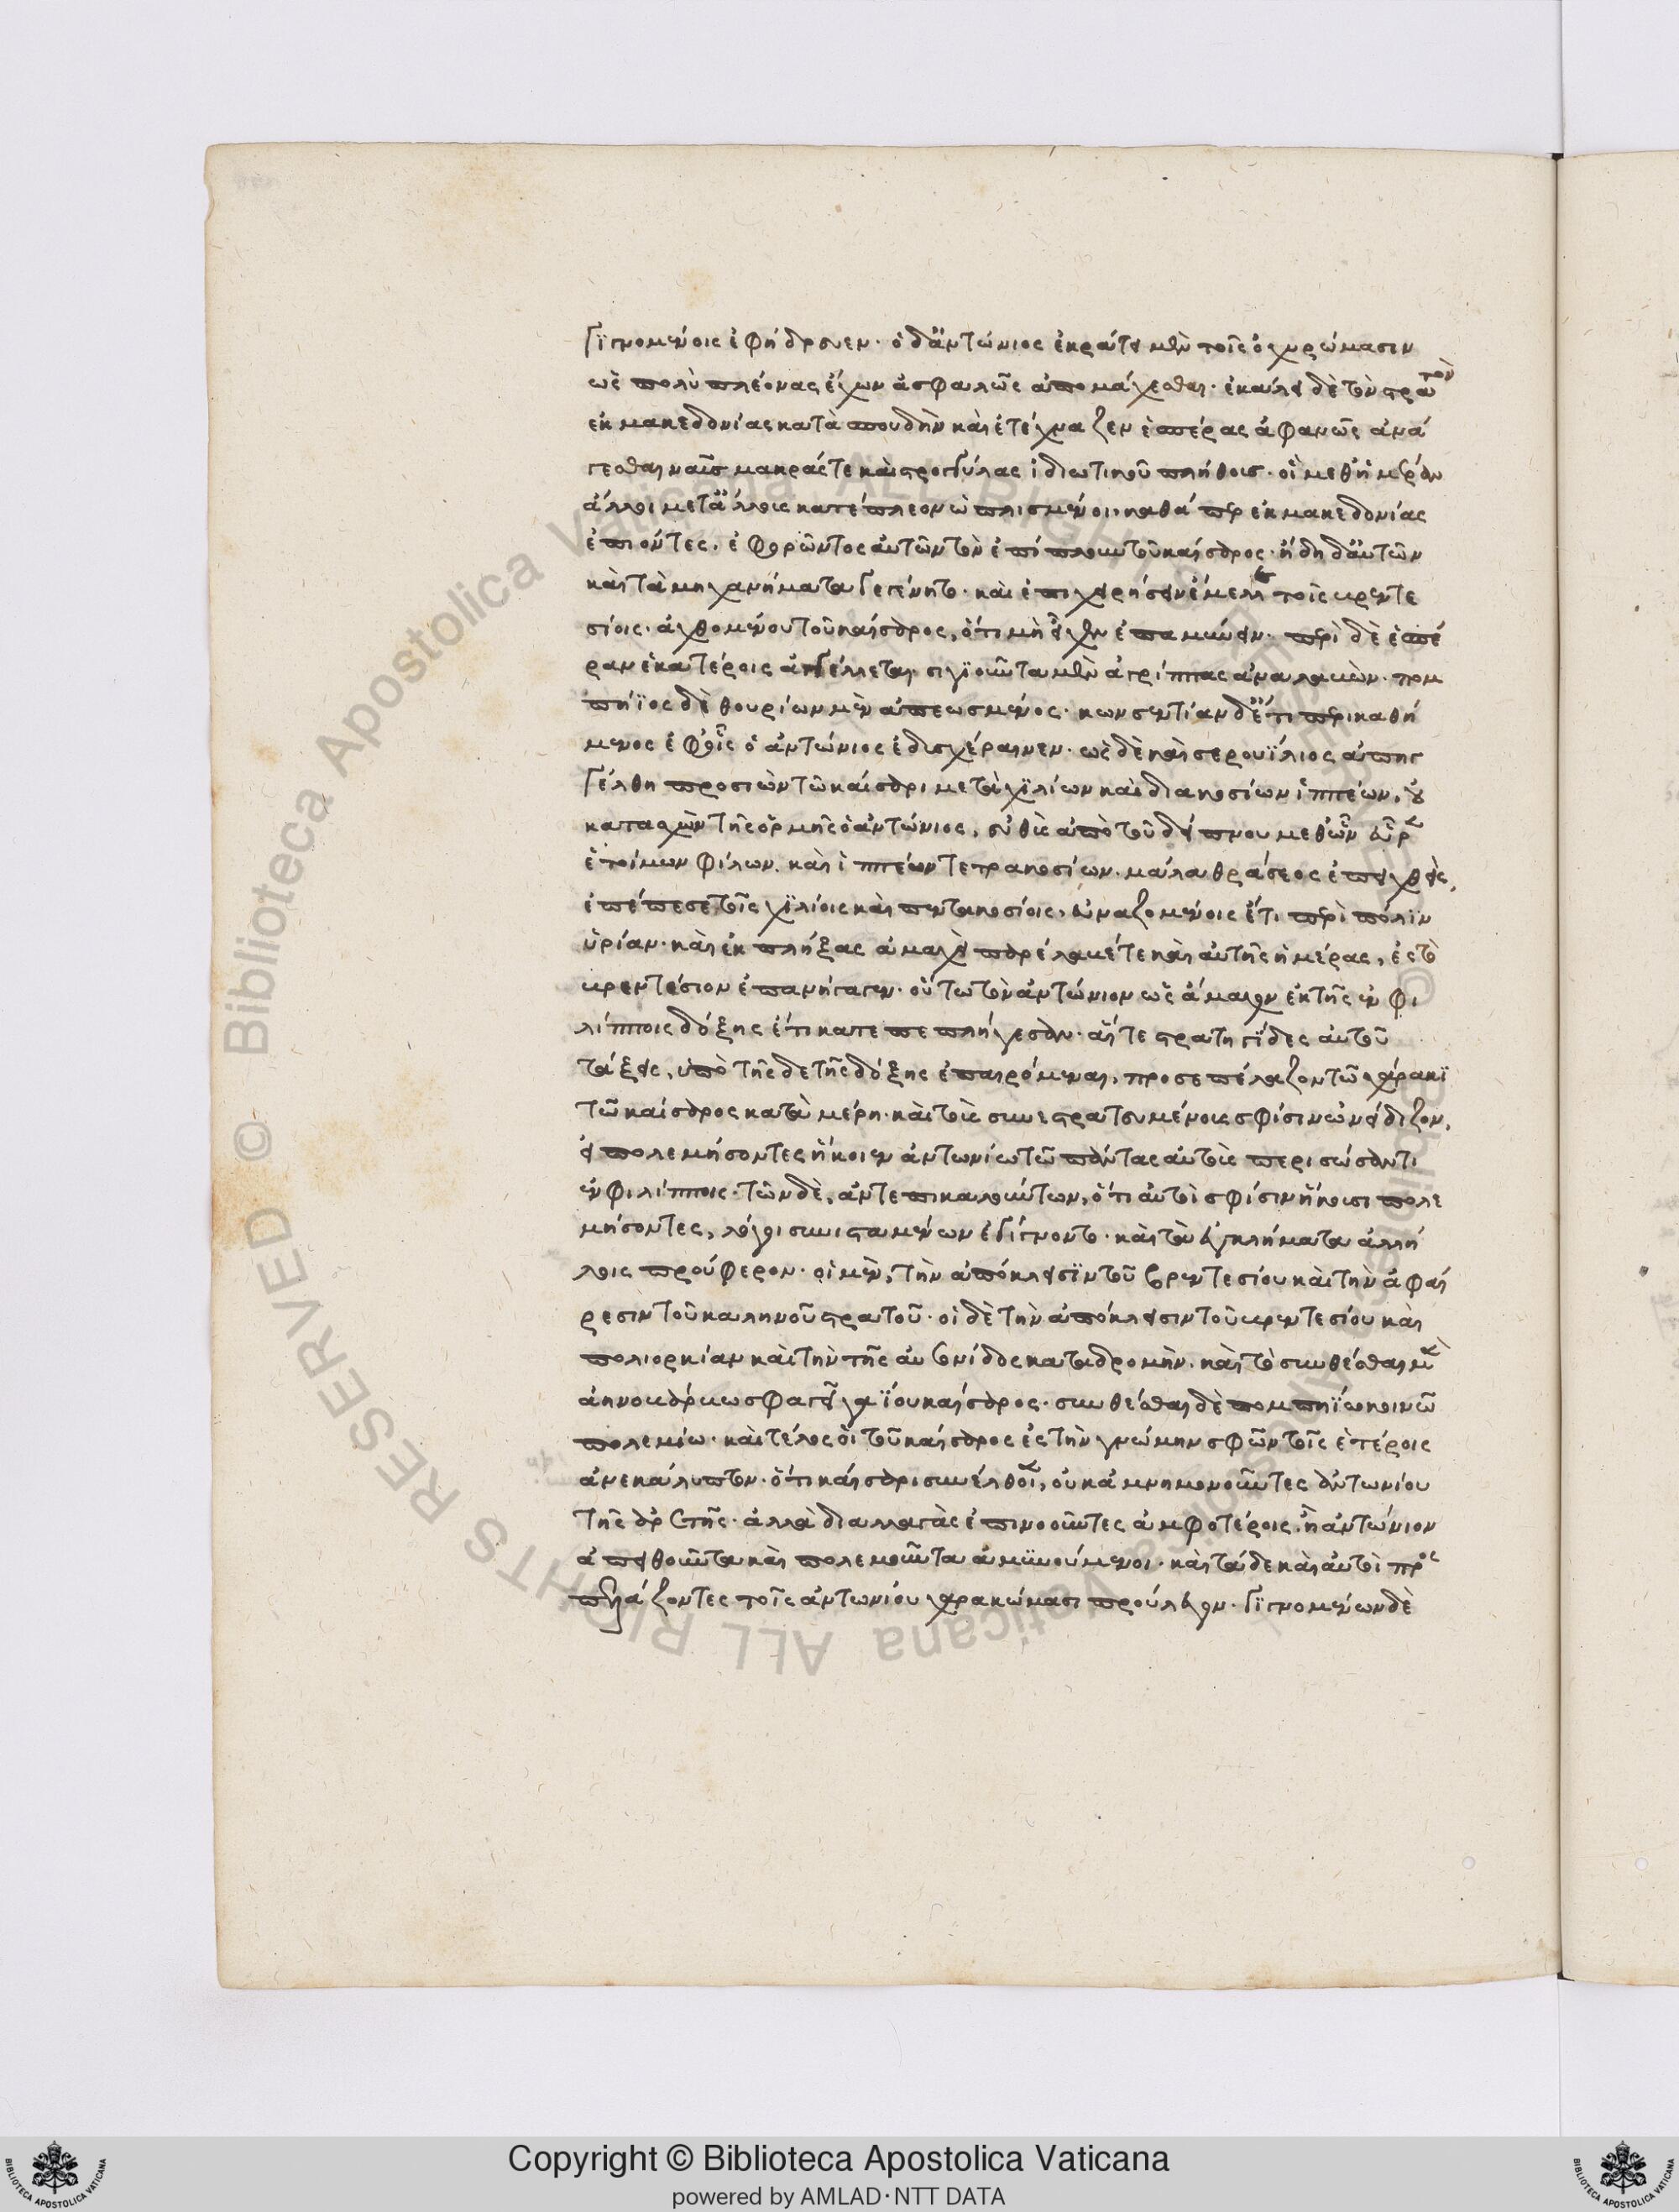 γιγνομένοις ἐφήδρευεν· ὁ δ' ἀντώνιος ἐκράτει μὲν τοῖς ὀχυρώμασιν
ὡς πολὺ πλέονας ἔχων ἀσφαλῶς ἀπομάχεσθαι· ἐκάλει δὲ τὸν στρατὸν
ἐκ μακεδονίας κατὰ σπουδὴν καὶ ἐτέχναζεν ἑσπέρας ἀφανῶς ἀνά
γεσθαι ναῦς μακράς τε καὶ στρογγύλας ἰδιωτικοῦ πλήθους· οἳ μεθ' ἡμέραν
ἄλλοι μετ' ἄλλους κατέπλεον ὡπλισμένοι, καθά περ ἐκ μακεδονίας
ἐπιόντες, ἐφορῶντος αὐτῶν τὸν ἐπίπλουν τοῦ καίσαρος· ἤδη δ' αὐτῶν
καὶ τὰ μηχανήματα γεγένητο· καὶ ἐπιχειρήσειν ἔμελλε τοῖς βρεντε
σίοις· ἀχθομένου τοῦ καίσαρος, ὅτι μὴ εἶχεν ἐπαμύνειν· περὶ δὲ ἑσπέ
ραν ἑκατέροις ἀγγέλλεται σιγιοῦντα μὲν ἀγρίππας ἀναλαβών· πομ
πήϊος δὲ θουρίων μὲν ἀπεωσμένος· κωνσεντίαν δ' ἔτι περικαθή
μενος ἐφ' οἷς ὁ ἀντώνιος ἐδυσχέραινεν· ὡς δὲ καὶ σερουΐλιος ἀπηγ
γέλθη προσιὼν τῶ καίσαρι μετὰ χιλίων καὶ διακοσίων ἱππέων, οὐ
κατασχὼν τῆς ὁρμῆς ὁ ἀντώνιος, εὐθὺς ἀπὸ τοῦ δείπνου μεθ' ὧν εὗρεν
ἑτοίμων φίλων. καὶ ἱππέων τετρακοσίων. μάλα θράσεος ἐπειχθεὶς,
ἐπέπεσε τοῖς χιλίοις καὶ πεντακοσίοις, εὐναζομένοις ἔτι περὶ πόλιν
ὑρίαν· καὶ ἐκπλήξας ἀμαχεὶ παρέλαβέ τε καὶ αὐτῆς ἡμέρας, ἐς τὸ
βρεντέσιον ἐπανήγαγεν· οὕτω τὸν ἀντώνιον ὡς ἄμαχον ἐκ τῆς ἐν φι
λίπποις δόξης ἔτι κατεπεπλήγεσαν· αἵ τε στρατηγίδες αὐτοῦ
τάξεις, ὑπὸ τῆσδε τῆς δόξης ἐπαιρόμεναι, προσεπέλαζον τῶ χάρακι
τῶ καίσαρος κατὰ μέρη· καὶ τοὺς συνεστρατευμένους σφίσιν ὠνείδιζον,
εἰ πολεμήσοντες ἥκοιεν ἀντωνίω τῶ πάντας αὐτοὺς περισώσαντι
ἐν φιλίπποις· τῶν δὲ, ἀντεπικαλούντων, ὅτι αὐτοὶ σφίσιν ἥκουσι πολε
μήσοντες, λόγοι συνισταμένων ἐγίγνοντο· καὶ τὰ ἐγκλήματα ἀλλή
λοις προύφερον· οἱ μὲν, τὴν ἀπόκλεισιν τοῦ βρεντεσίου καὶ τὴν ἀφαί
ρεσιν τοῦ καληνοῦ στρατοῦ· οἱ δὲ τὴν ἀπόκλεισιν τοῦ βρεντεσίου καὶ
πολιορκίαν καὶ τὴν τῆς αὐσονίδος καταδρομὴν. καὶ τὸ συνθέσθαι μὲν
ἀηνοβάρβω σφαγεῖ γαΐου καίσαρος· συνθέσθαι δὲ πομπηΐω κοινῶ
πολεμίω· καὶ τέλος οἱ τοῦ καίσαρος ἐς τὴν γνώμην σφῶν τοῖς ἑτέροις
ἀνεκάλυπτον· ὅτι καίσαρι συνέλθοιεν, οὐκ ἀμνημονοῦντες ἀντωνίου
τῆς ἀρετῆς· ἀλλὰ διαλλαγὰς ἐπινοοῦντες ἀμφοτέροις, ἢ ἀντώνιον
ἀπειθοῦντα καὶ πολεμοῦντα ἀμυνούμενοι· καὶ τάδε καὶ αὐτοὶ προσ
πελάζοντες τοῖς ἀντωνίου χαρακώμασι προύλεγον· γιγνομένων δὲ
Copyright © Biblioteca Apostolica Vaticana
powered by AMLAD·NTT DATA